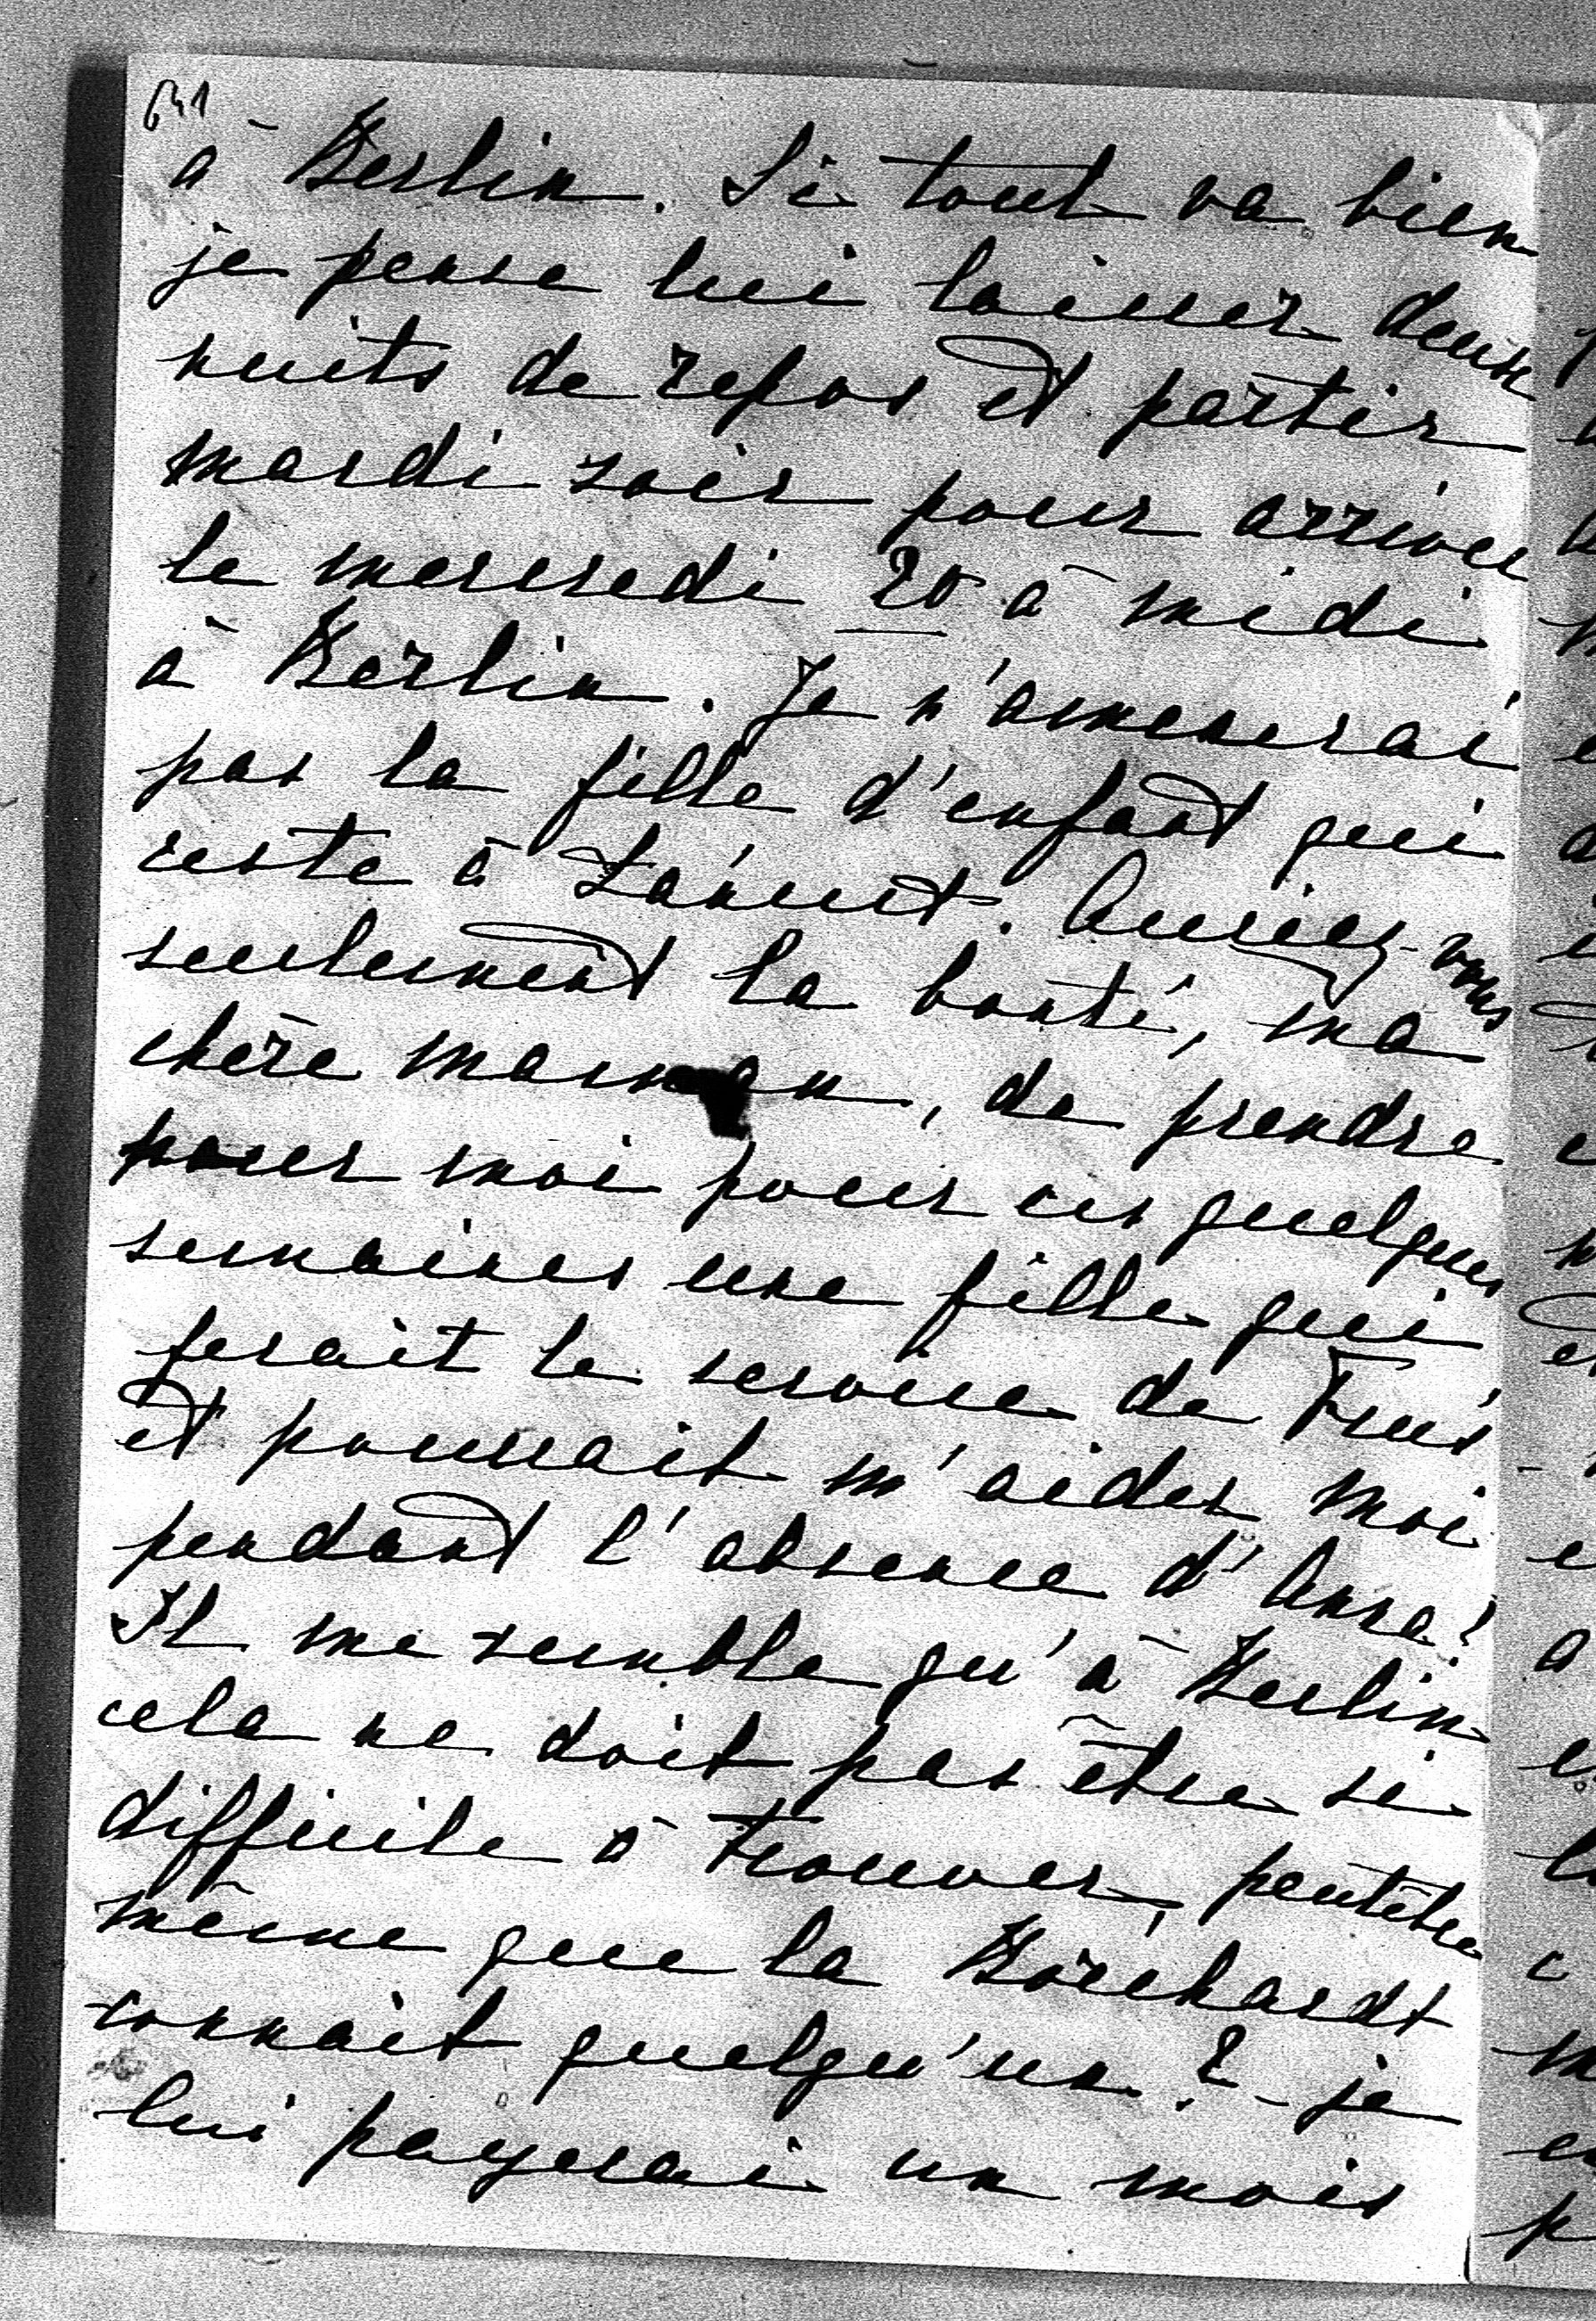 641
à Berlin. Si tout va bien
je pense lui laisser deux
nuits de repos et partir
mardi soir pour arriver
le mercredi 20 à midi
à Berlin. Je n'amenerai
pas la fille d'enfant qui
reste à Łańcut. Auriez-vous
seulement la bonté, ma
chère maman, de prendre
pour moi pour ces quelques
semaines une fille qui
ferait le service de
et pourrait m'aider moi
pendant l'absence d'Anna?
Il me semble qu'à Berlin
cela ne doit pas être si
difficile à trouver, peutêtre
même que la Borchardt
connait quelqu'un? - je
lui payerai un mois